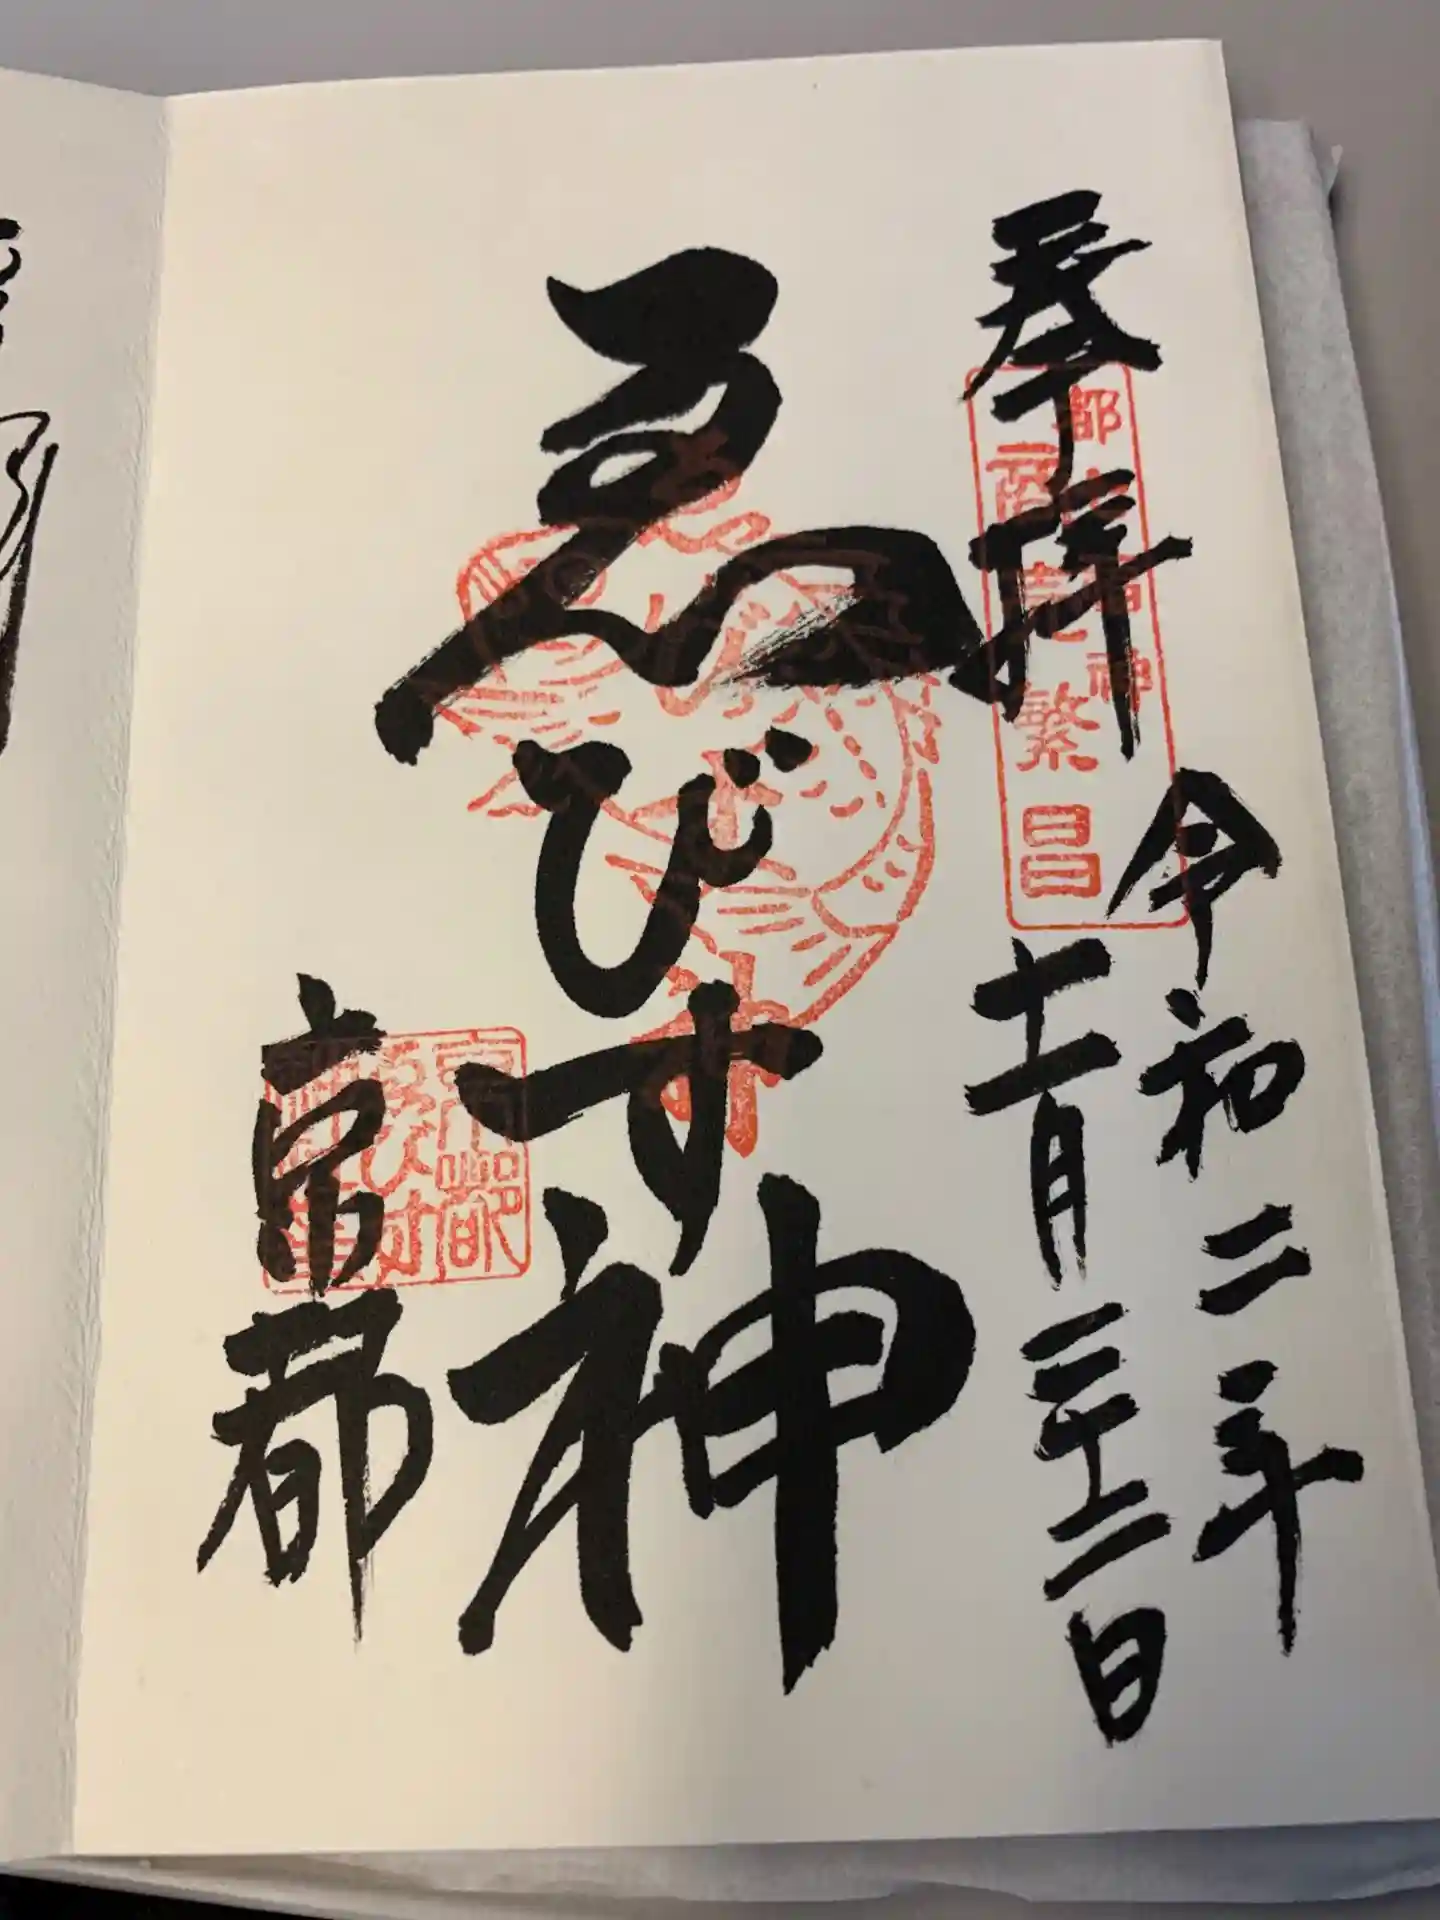 奉拝
都
神
商売繁昌
令和二年
十一月二十二日
ゑびす神
京都
京都ゑびす神社